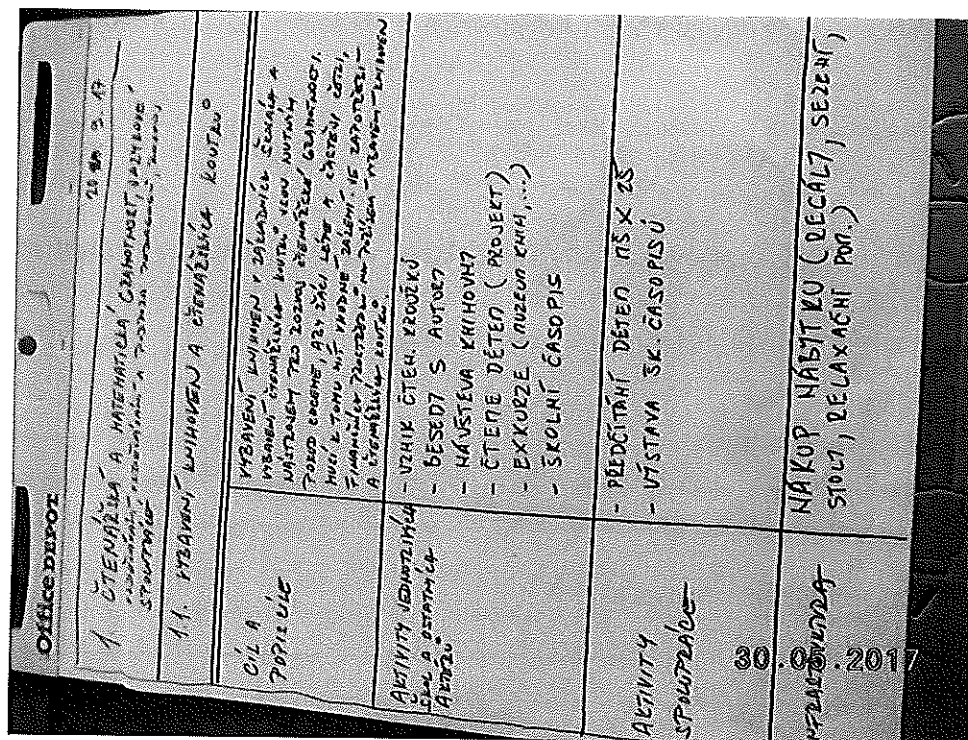 Office DEPOT
1 ČTENÁŘSKÁ A MATEMATICKÁ GRAMOTNOST, JAZYKOVÉ
1.1. VYBAVENÍ KNIHOVEN A ČTENÁŘSKÝCH KOUTKŮ
CÍL A
POPIS CÍLE
VYBAVENÍ KNIHOVEN V ZÁKLADNÍCH ŠKOLÁCH A
VYBAVENÍ ČTENÁŘSKÝCH KOUTKŮ JSOU NUTNÝM
NÁSTROJEM PRO ROZVOJ ČTENÁŘSKÉ GRAMOTNOSTI.
POKUD CHCEME, ABY ŽÁCI LÉPE A ČASTĚJI ČETLI,
MUSÍ K TOMU MÍT VHODNÉ ZÁZEMÍ - JE ZAPOTŘEBÍ
FINANČNÍCH PROSTŘEDKŮ VYBAVENÍ KNIHOVEN
A ČTENÁŘSKÝCH KOUTKŮ.
AKTIVITY JEDNOTLIVÝCH
ŠKOL A OSTATNÍCH
AKTÉRŮ
- VZNIK ČTEN. KROUŽKŮ
- BESEDY S AUTORY
- NÁVŠTĚVA KNIHOVNY
- ČTEME DĚTEM (PROJEKT)
- EXKURZE (MUZEUM KNIH,...)
- ŠKOLNÍ ČASOPIS
AKTIVITY
SPOLUPRÁCE
- PŘEDČÍTÁNÍ DĚTEM MŠ X ZŠ
- VÝSTAVA ŠK. ČASOPISŮ
NÁKUP NÁBYTKU (REGÁLY, SEZENÍ,
STOLY, RELAXAČNÍ POM.)
30.05.2017